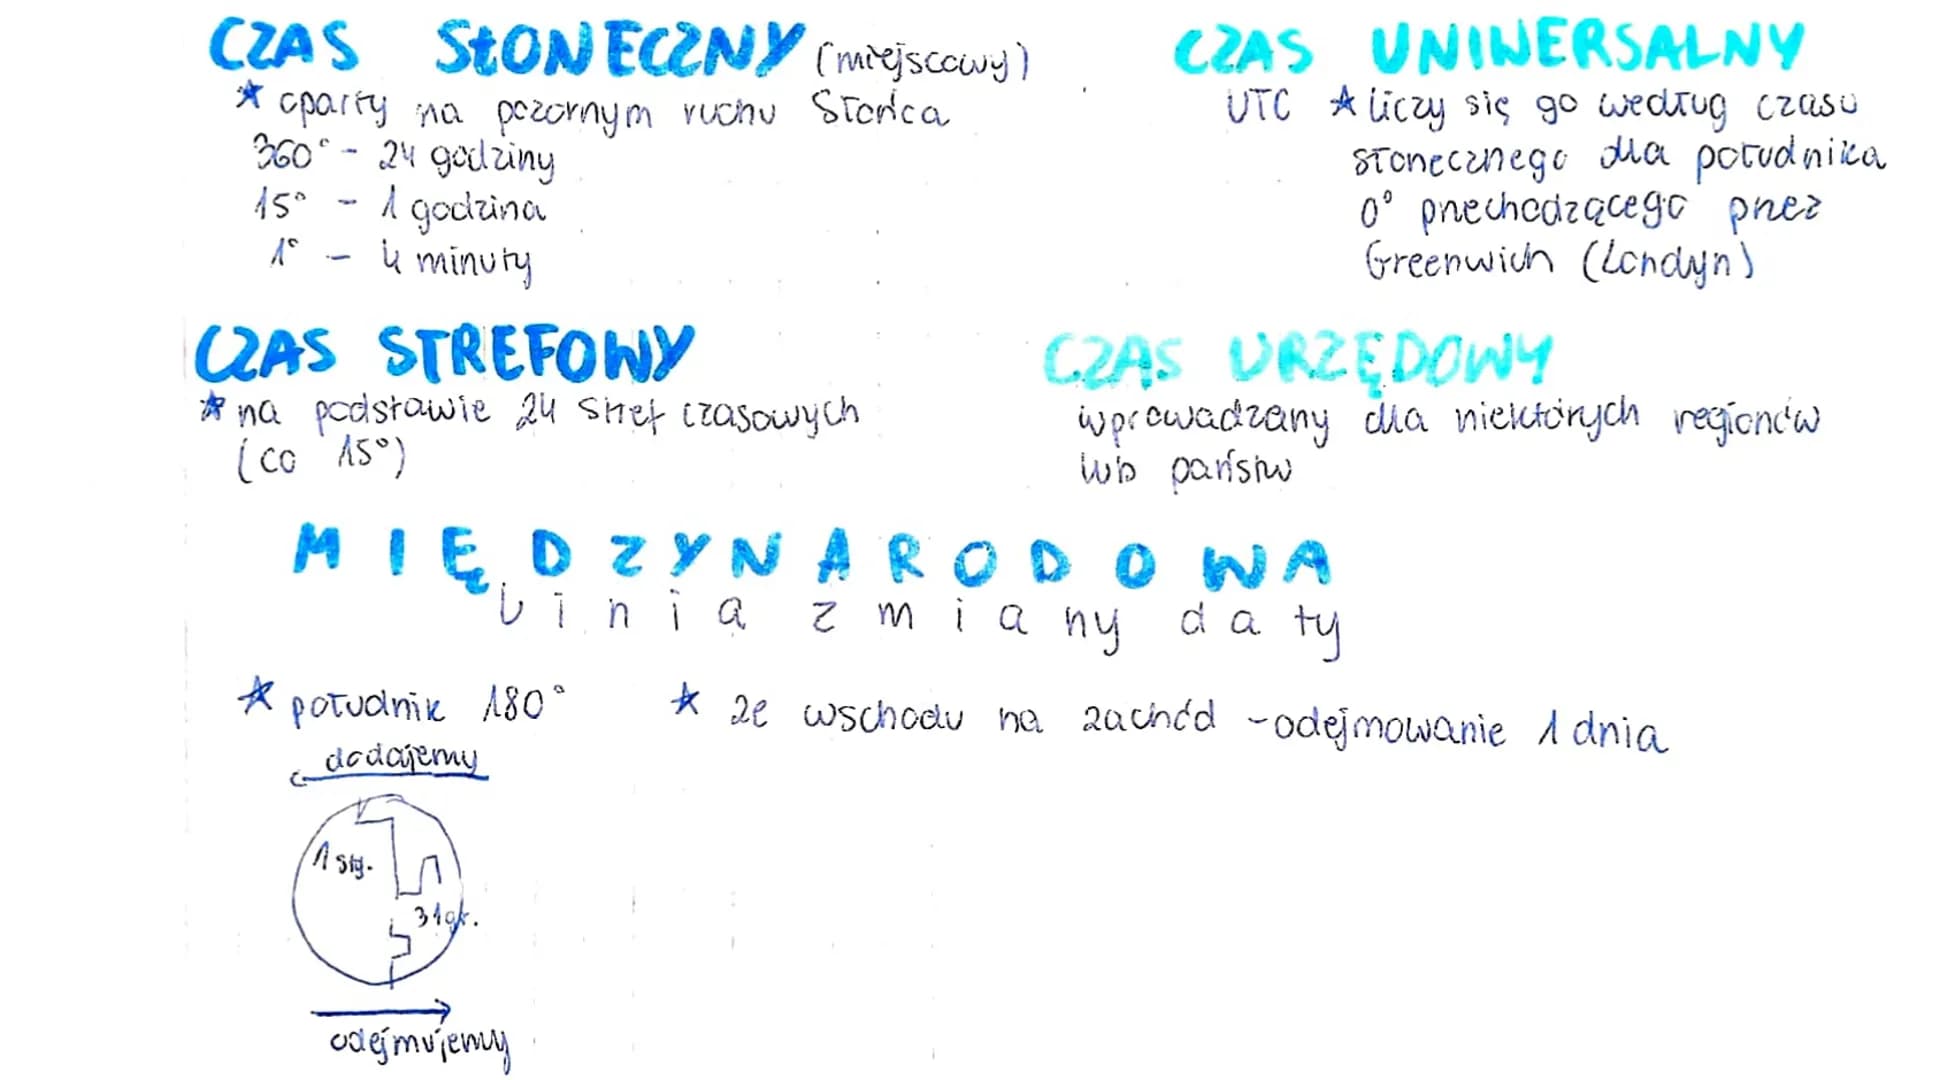 CZAS SŁONECZNY (miejscowy)
★ oparty na pozornym ruchu Słońca
360° - 24 godziny
15° - 1 godzina
1° - 4 minuty
CZAS UNIWERSALNY
UTC ★ liczy się go według czasu
słonecznego dla południka
0° przechodzącego przez
Greenwich (Londyn)
CZAS STREFOWY
★ na podstawie 24 stref czasowych
(co 15°)
CZAS URZĘDOWY
wprowadzany dla niektórych regionów
lub państw
MIĘDZYNARODOWA
linia zmiany daty
★ południk 180°
★ ze wschodu na zachód - odejmowanie 1 dnia
dodajemy
1 sty.
31 gr.
odejmujemy